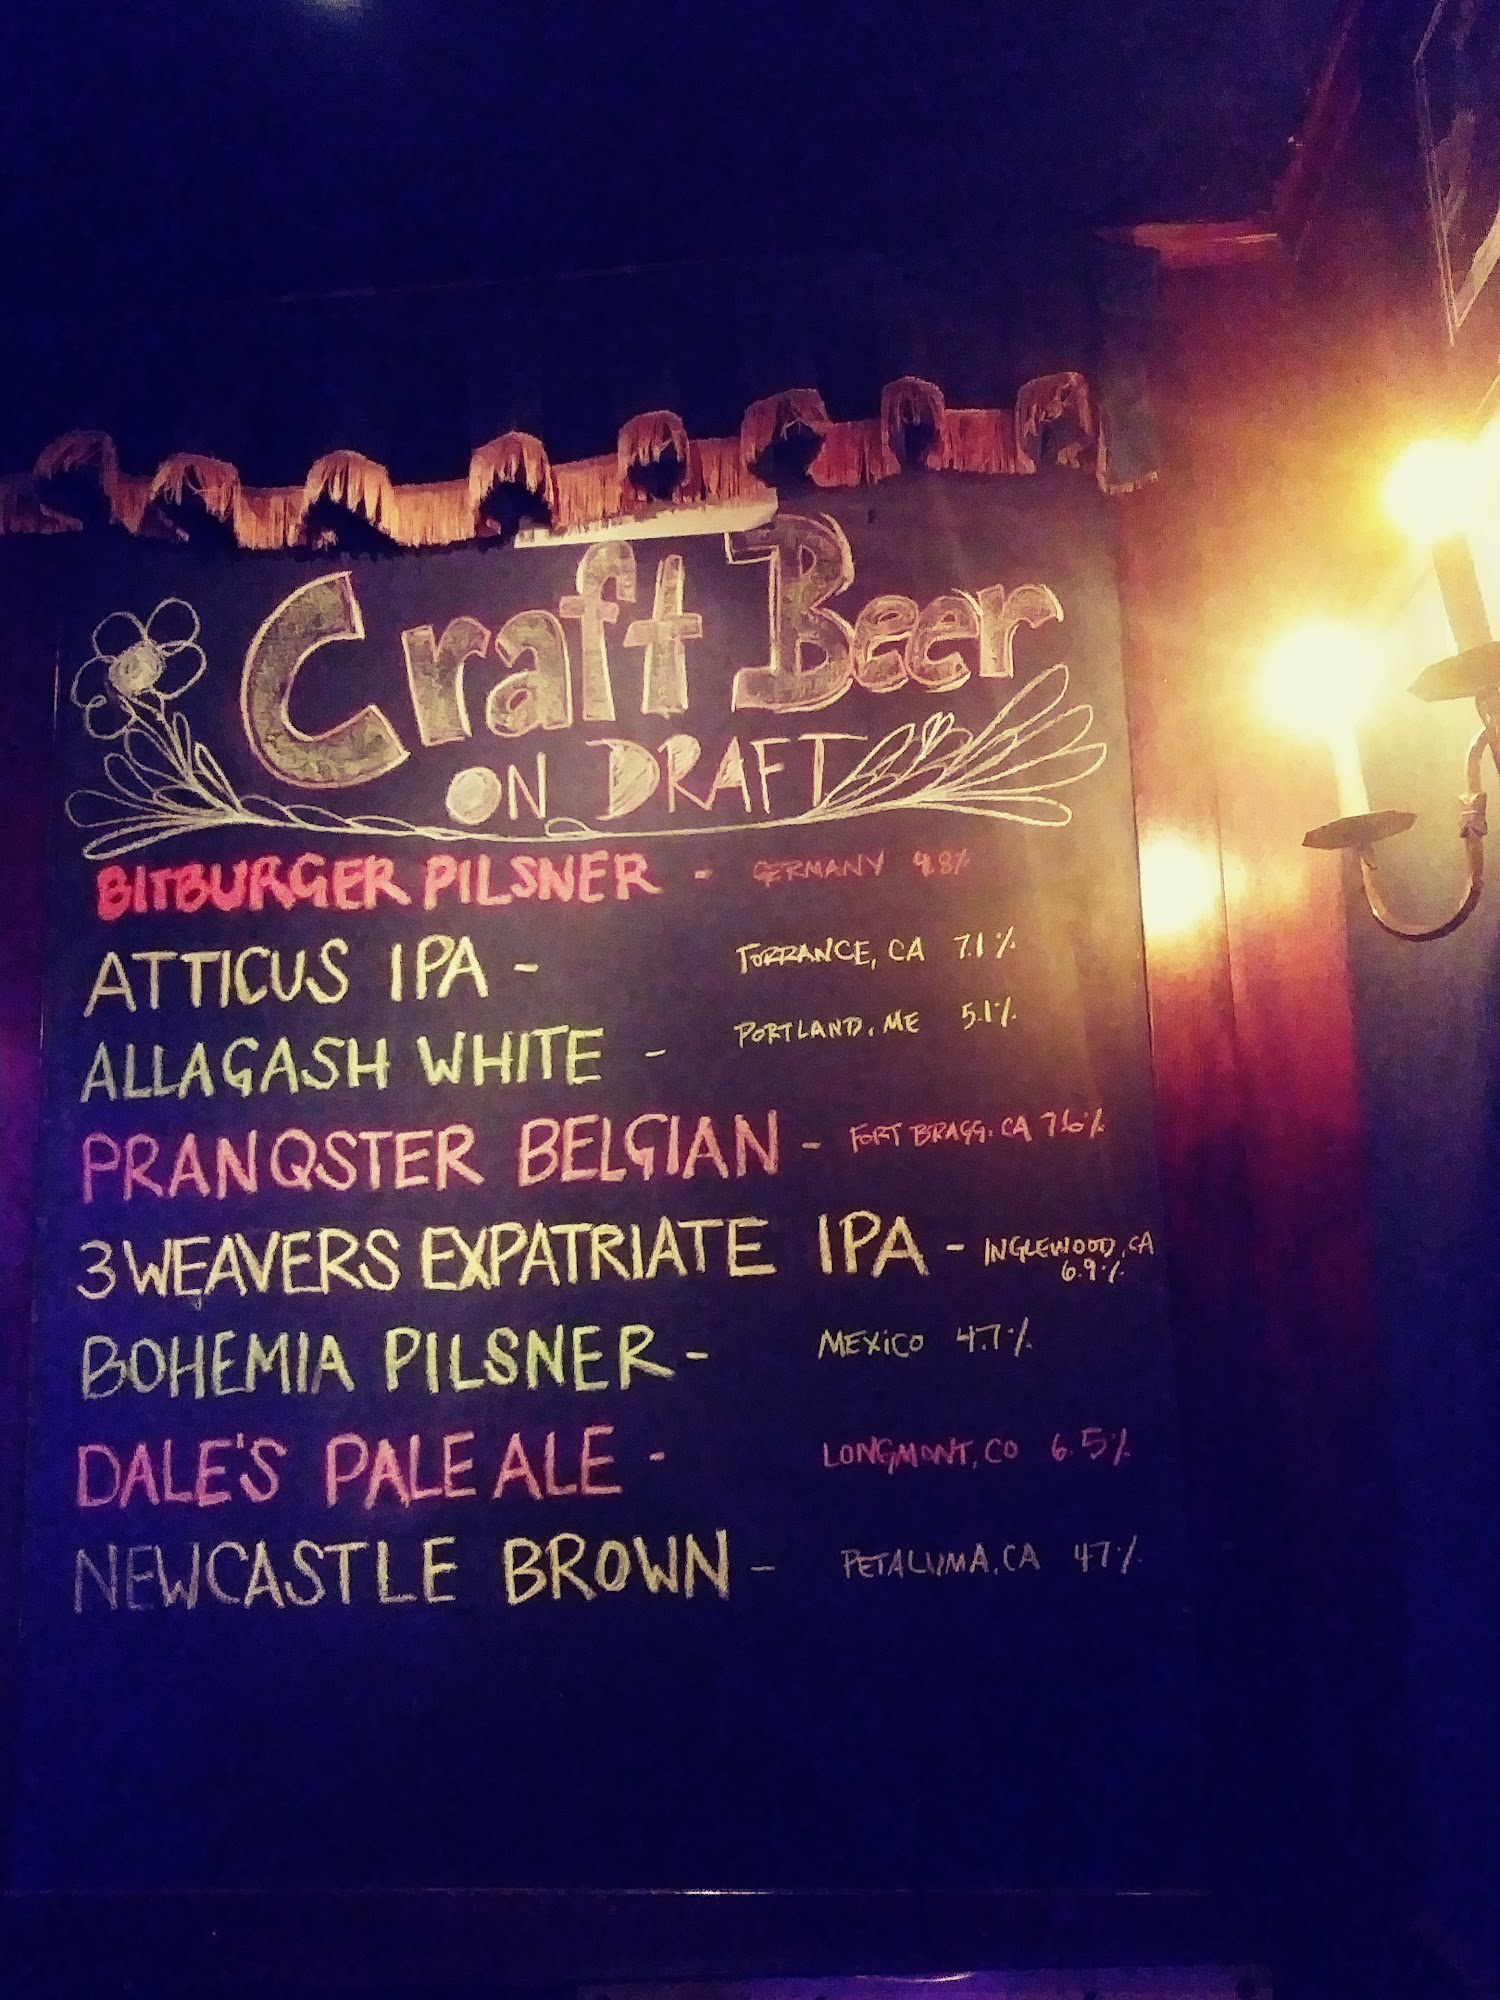 Craft Beer
ON DRAFT
BITBURGER PILSNER - GERMANY 4.8%
ATTICUS IPA - TORRANCE, CA 7.1%
ALLAGASH WHITE - PORTLAND, ME 5.1%
PRANQSTER BELGIAN - FORT BRAGG, CA 7.6%
3 WEAVERS EXPATRIATE IPA - INGLEWOOD, CA
6.9%
BOHEMIA PILSNER - MEXICO 4.7%
DALE'S PALE ALE - LONGMONT, CO 6.5%
NEWCASTLE BROWN - PETALUMA, CA 4.7%